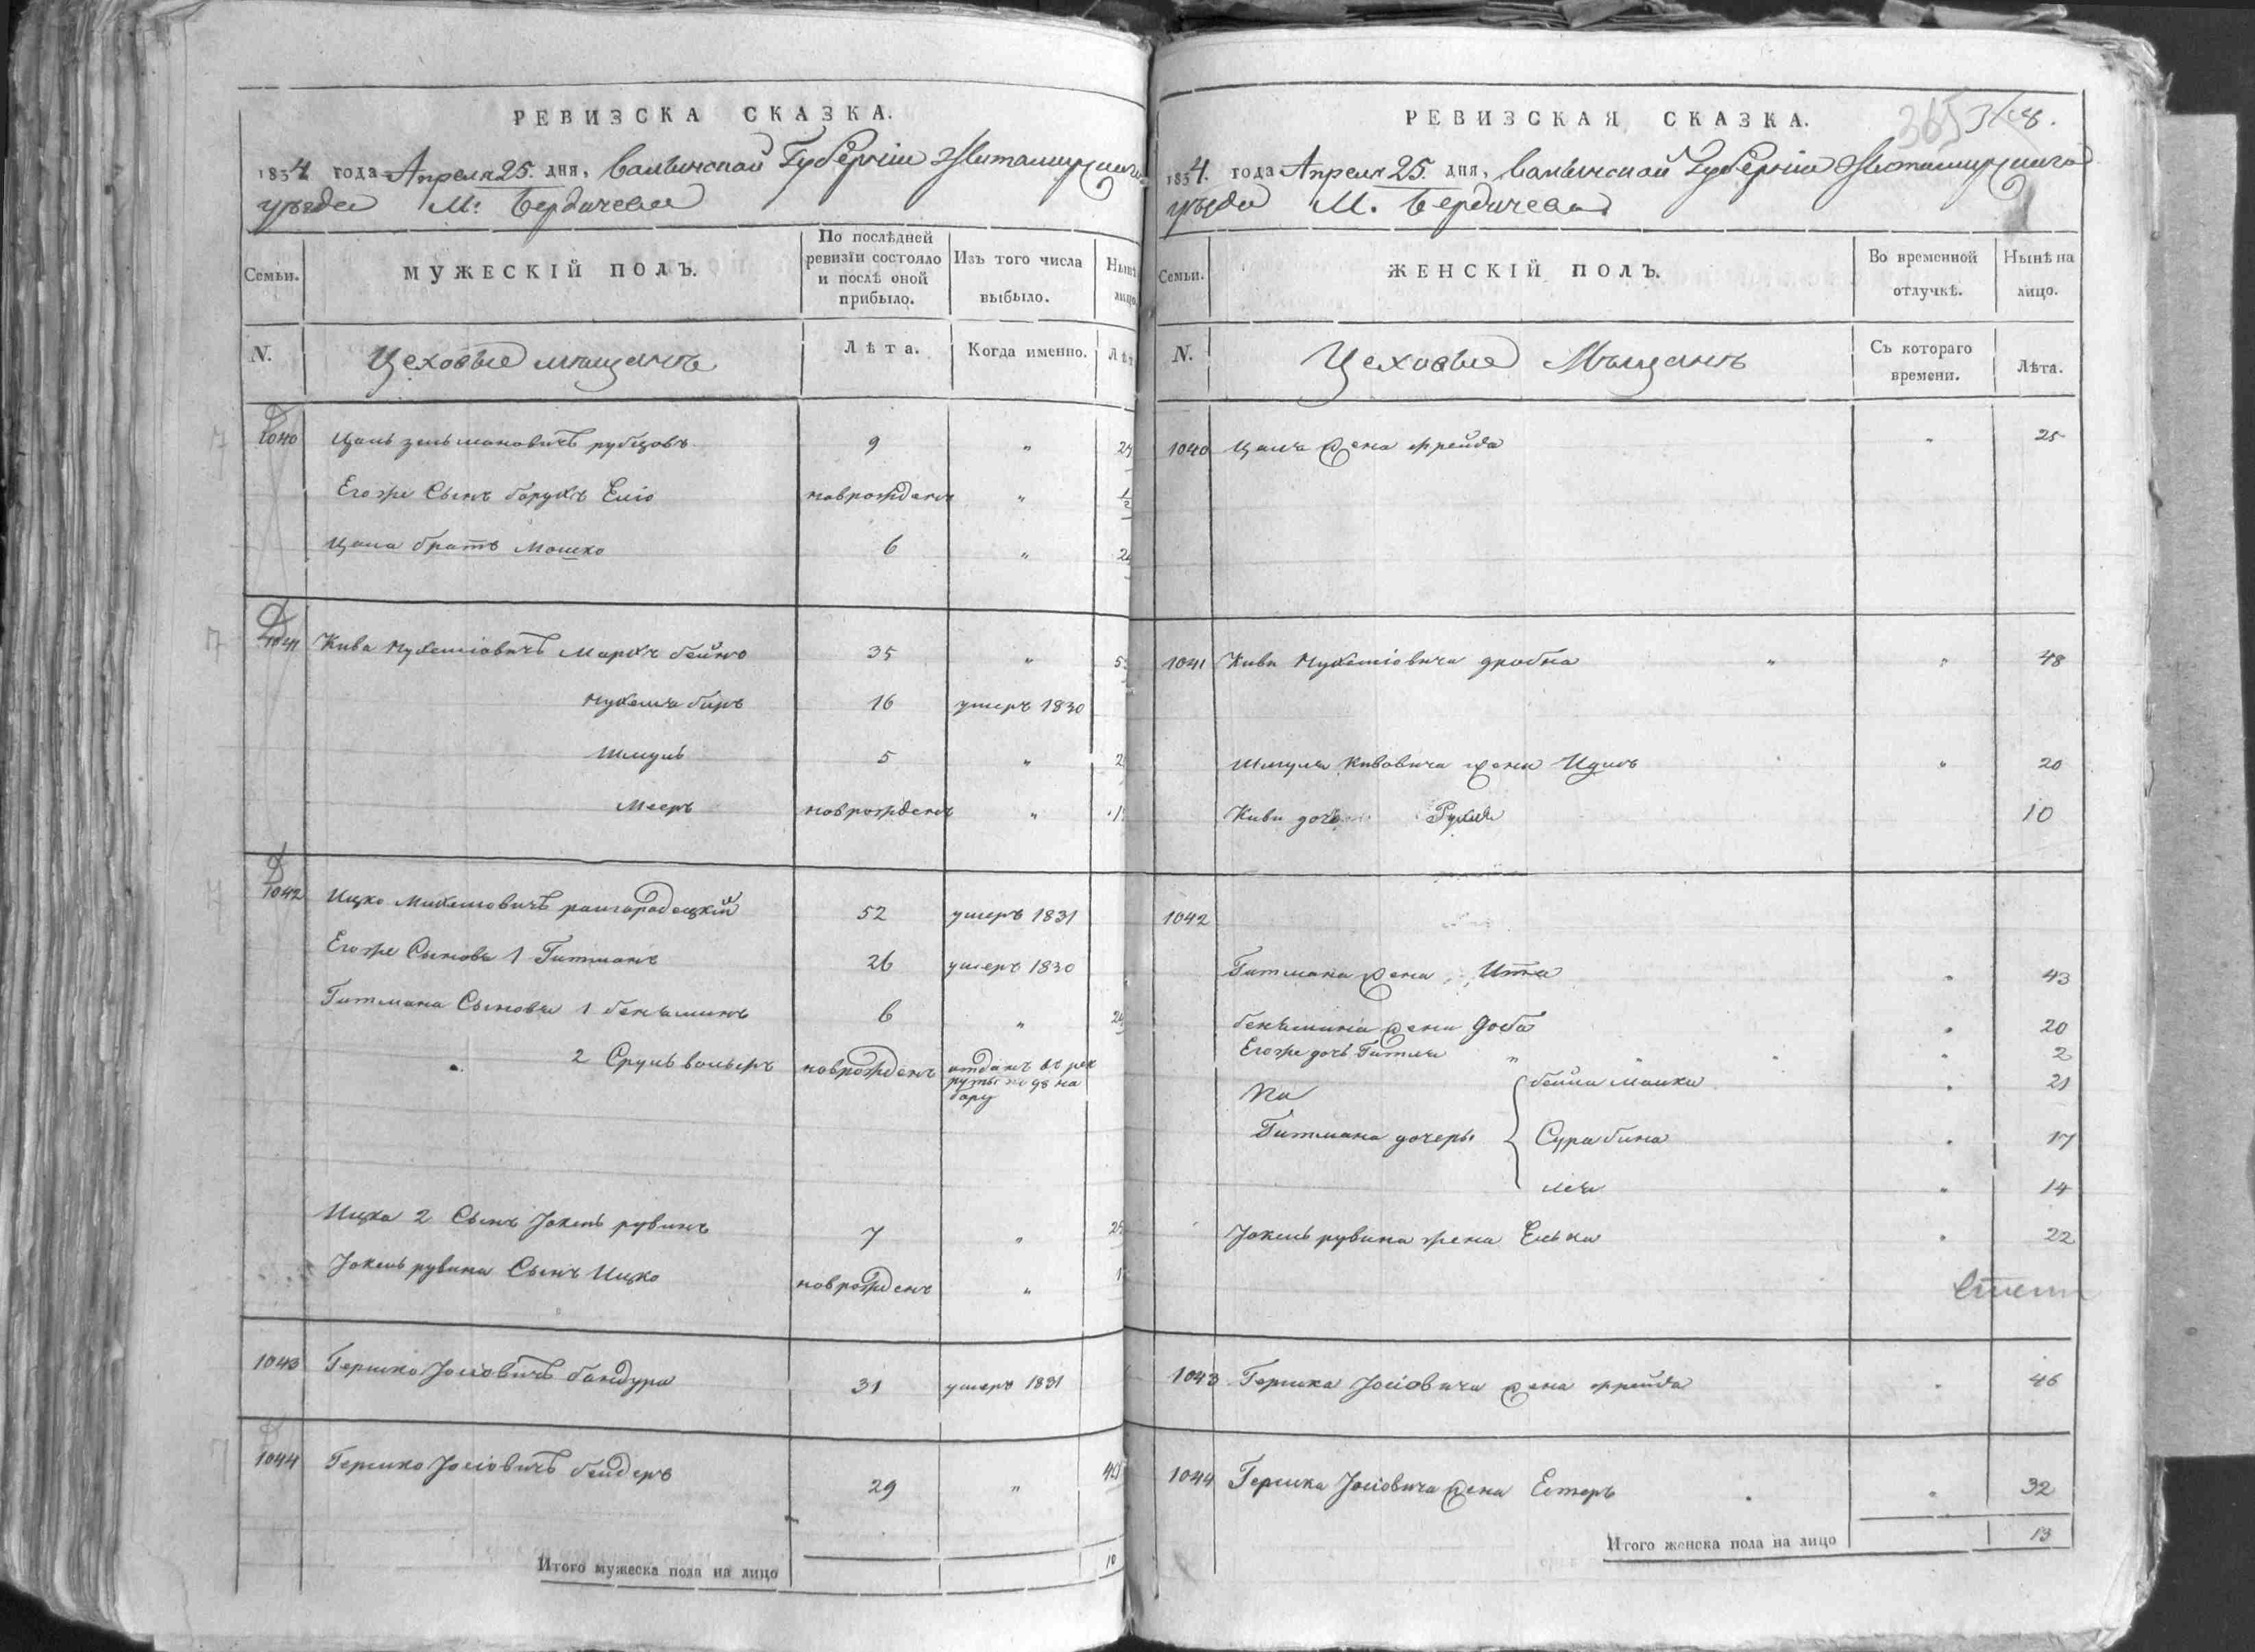 РЕВИЗСКА СКАЗКА.
1834 года Апреля 25. дня, Волынской Губерніи Житомирскаго
уезда М: Бердичева
Семьи.
МУЖЕСКІЙ ПОЛЪ.
По послѣдней ревизіи состояло и послѣ оной прибыло.
Изъ того числа выбыло.
Нынѣ лицо
N.
Цеховые мещанъ
Лѣта.
Когда именно.
Лѣт
1040 Цаль Зельмановичъ рубцовъ 9 "
Егоже Сынъ борухъ Еліо новрожденъ " 1/2
Цаля братъ Мошко 6 "
1041 Кива Нухемiовичъ Маркъ бейно 35 "
Нухемъ биръ 16 умеръ 1830
Шмуль 5 "
Мееръ новрожденъ "
1042 Ицко Михелiовичъ райгородецкій 52 умеръ 1831
Егоже Сыновья 1 Гитманъ 26 умеръ 1830
Гитмана Сыновья 1 бенъяминъ 6 "
2 Сруль вольеръ новрожденъ отданъ въ рек
руты по 98 на
бору
Ицка 2 Сынъ Іокель рувинъ 7 "
Іокель рувина Сынъ Ицко новрожденъ "
1043 Гершко Іосіовичъ бандура 31 умеръ 1831
1044 Гершко Іосіовичъ бендеръ 29 "
Итого мужеска пола на лицо 10
РЕВИЗСКАЯ СКАЗКА.
365
1834. года Апреля 25. дня, Волынской Губерніи Житомирскаго
уезда М. Бердичева
Семьи.
ЖЕНСКІЙ ПОЛЪ.
Во временной отлучкѣ.
Нынѣ на лицо.
N.
Цеховые Мещанъ
Съ котораго времени.
Лѣта.
1040 Цаля жена Фрейда " 25
1041 Киви Нухемiовича дробна " " 48
Шмуля Кивовича жена Идись " 20
Киви дочь Рухля 10
1042
Гитмана жена Ита " 43
бенъямина жена Доба " 20
Егоже дочь Гитля " " " " 2
бейла Малка " 21
Гитмана дочеры Сура бина " 17
Лея " 14
Іокель рувина жена Елька " 22
1043 Гершка Іосіовича жена Фрейда " 46
1044 Гершка Іосіовича жена Естеръ " 32
Итого женска пола на лицо 13